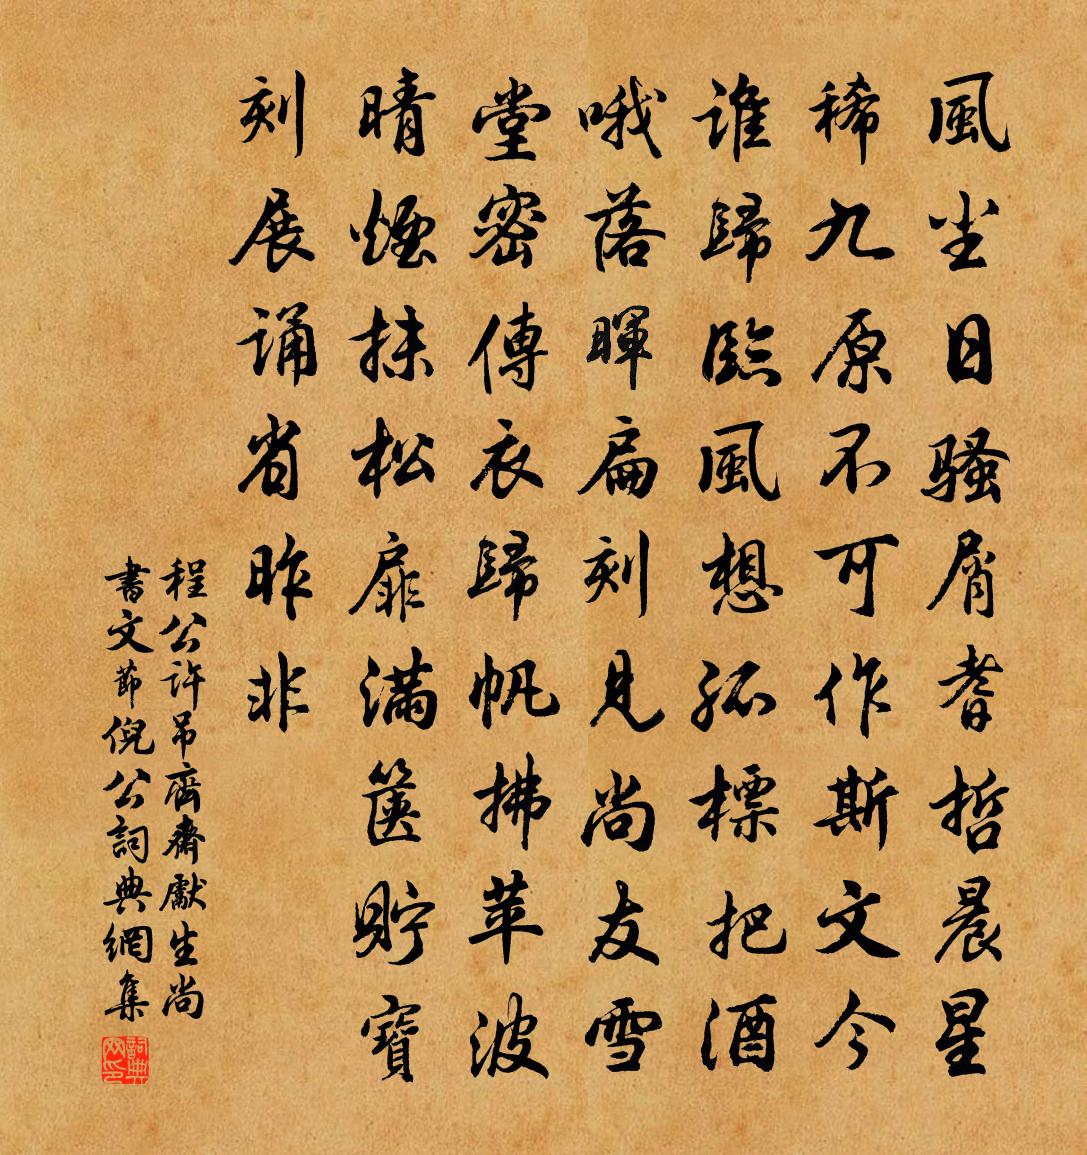 風尘日骚屑耆哲晨星
稀九原不可作斯文今
谁歸臨風想孤標把酒
哦落暉扁刻見尚友雪
堂密傳衣歸帆拂苹波
晴煙抹松扉滿箧貯寶
刻展诵省昨非
程公许吊齊齋獻生尚
書文節倪公詞典網集
詞典
网印